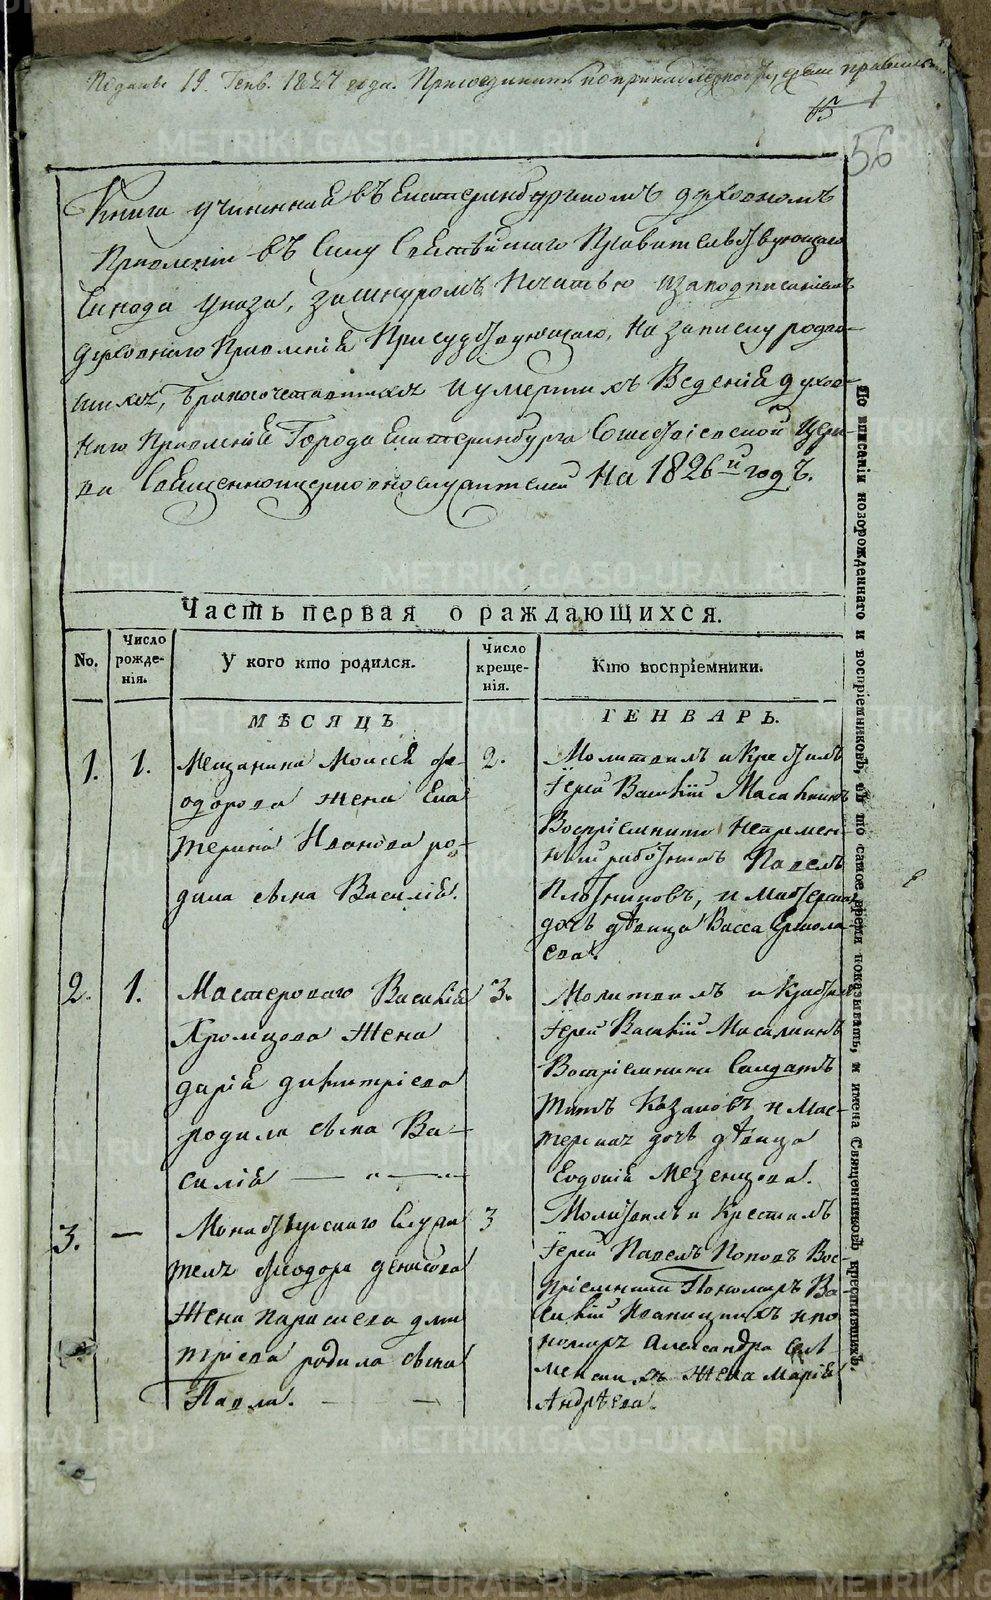 Подана 19. Генв. 1827 года. Присоединить по принадлежности
65
56
Книга учиненная въ Екатеринбургскомъ духовномъ
Правленіи въ Силу Святѣйшаго Правительствующаго
Синода указа, за шнуромъ Печатью и заподписаніемъ
Духовнаго Правленія Присудствующаго, На записку родив-
шихся, бракосочетавшихся и умершихъ Веденія духов-
наго Правленія Города Екатеринбурга Сошествіевской Церк-
ви Священноцерковнослужителей На 1826й годъ.
Часть первая о раждающихся.
No.
Число рожде-нія.
У кого кто родился.
Число креще-нія.
Кто воспріемники.
МѢСЯЦЪ
ГЕНВАРЬ.
1. 1.
Мещанина Моисея Ѳе-
одорова жена Ека
терина Иванова ро-
дила сына Василія.
2.
Молитвилъ и Крестилъ
Іерей Василій
Воспріемники Непремен-
ный работникъ Павелъ
Плотниковъ, и Мастерская
дочь дѣвица Васса Ермола-
ева.
2. 1.
Мастероваго Василія
Хромцова Жена
дарія димитріева
родила сына Ва-
силія
3.
Молитвилъ и Крестилъ
Іерей Василій
Воспріемники Салдатъ
Титъ Казаковъ и Мас-
терская дочь дѣвица
Евдокія Мезенцова.
3. —
Монастырскаго Служи
теля Ѳеодора денисова
Жена Параскева дми
тріева родила сына
Павла.
3
Молитвилъ и Крестилъ
Іерей Павелъ Поповъ Вос-
пріемники Пономарь Ва
силій и по
номаря Александра
Жена Марія
Андрѣева.
По вписаніи новорожденнаго и воспріемниковъ, въ то самое время показывать, и имена Священниковъ крестившихъ.
METRIKI.GASO-URAL.RU